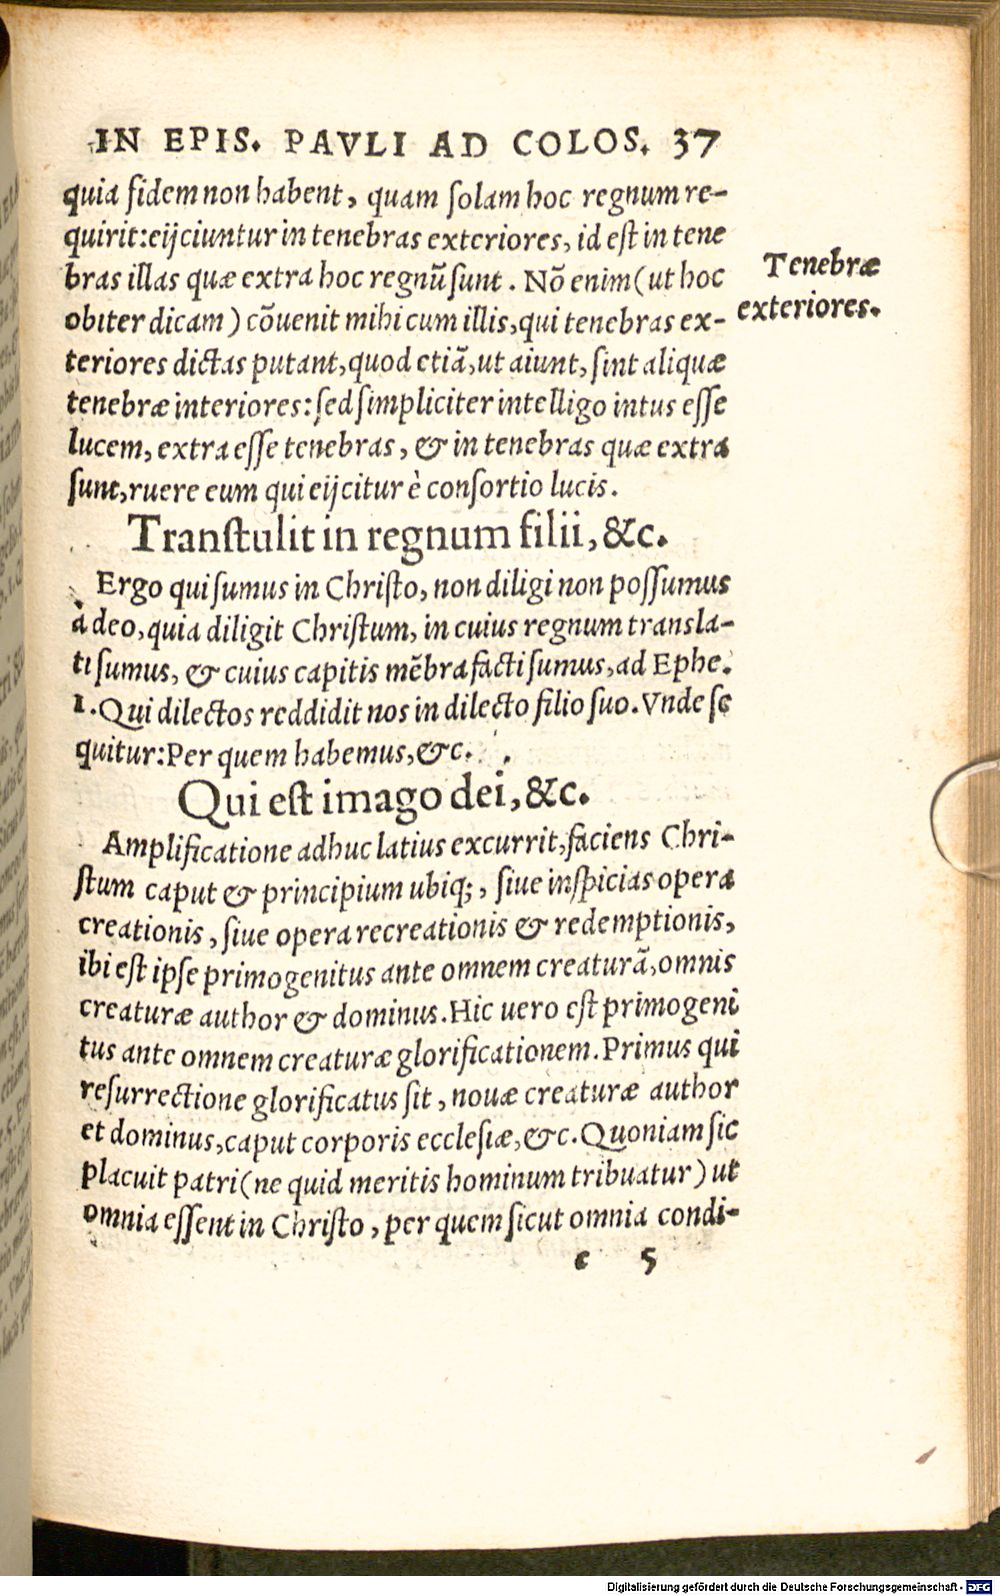 IN EPIS. PAVLI AD COLOS. 37
quia fidem non habent, quam ſolam hoc regnum re-
quirit: eijciuntur in tenebras exteriores, id eſt in tene
bras illas quæ extra hoc regnũ ſunt. Nõ enim (ut hoc
obiter dicam) cõuenit mihi cum illis, qui tenebras ex-
teriores dictas putant, quod etiã, ut aiunt, ſint aliquæ
tenebræ interiores: ſed ſimpliciter intelligo intus eſſe
lucem, extra eſſe tenebras, & in tenebras quæ extra
ſunt, ruere eum qui eijcitur è conſortio lucis.
Tenebræ
exteriores.
Tranſtulit in regnum filii, &c.
Ergo qui ſumus in Chriſto, non diligi non poſſumus
à deo, quia diligit Chriſtum, in cuius regnum transla-
ti ſumus, & cuius capitis mẽbra facti ſumus, ad Ephe.
1. Qui dilectos reddidit nos in dilecto filio ſuo. Vnde ſe
quitur: Per quem habemus, &c.
Qui eſt imago dei, &c.
Amplificatione adhuc latius excurrit, faciens Chri-
ſtum caput & principium ubiq;, ſiue inſpicias opera
creationis, ſiue opera recreationis & redemptionis,
ibi eſt ipſe primogenitus ante omnem creaturã, omnis
creaturæ author & dominus. Hic uero eſt primogeni
tus ante omnem creaturæ glorificationem. Primus qui
reſurrectione glorificatus ſit, nouæ creaturæ author
et dominus, caput corporis eccleſiæ, &c. Quoniam ſic
placuit patri (ne quid meritis hominum tribuatur) ut
omnia eſſent in Chriſto, per quem ſicut omnia condi-
c 5
Digitalisierung gefördert durch die Deutsche Forschungsgemeinschaft - DFG